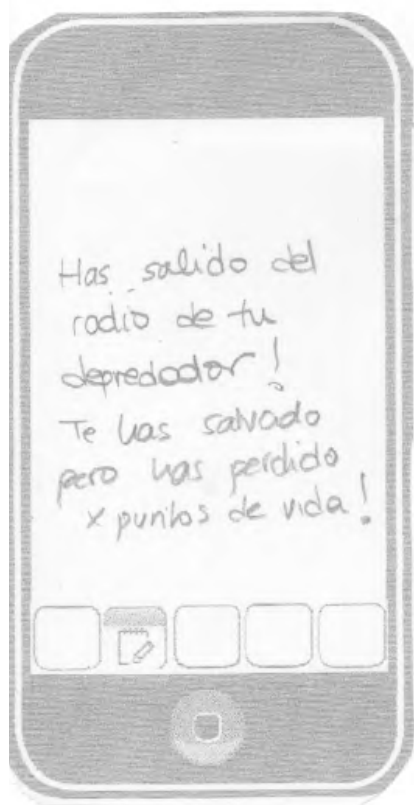 Has salido del
radio de tu
depredador!
Te has salvado
pero has perdido
x puntos de vida!